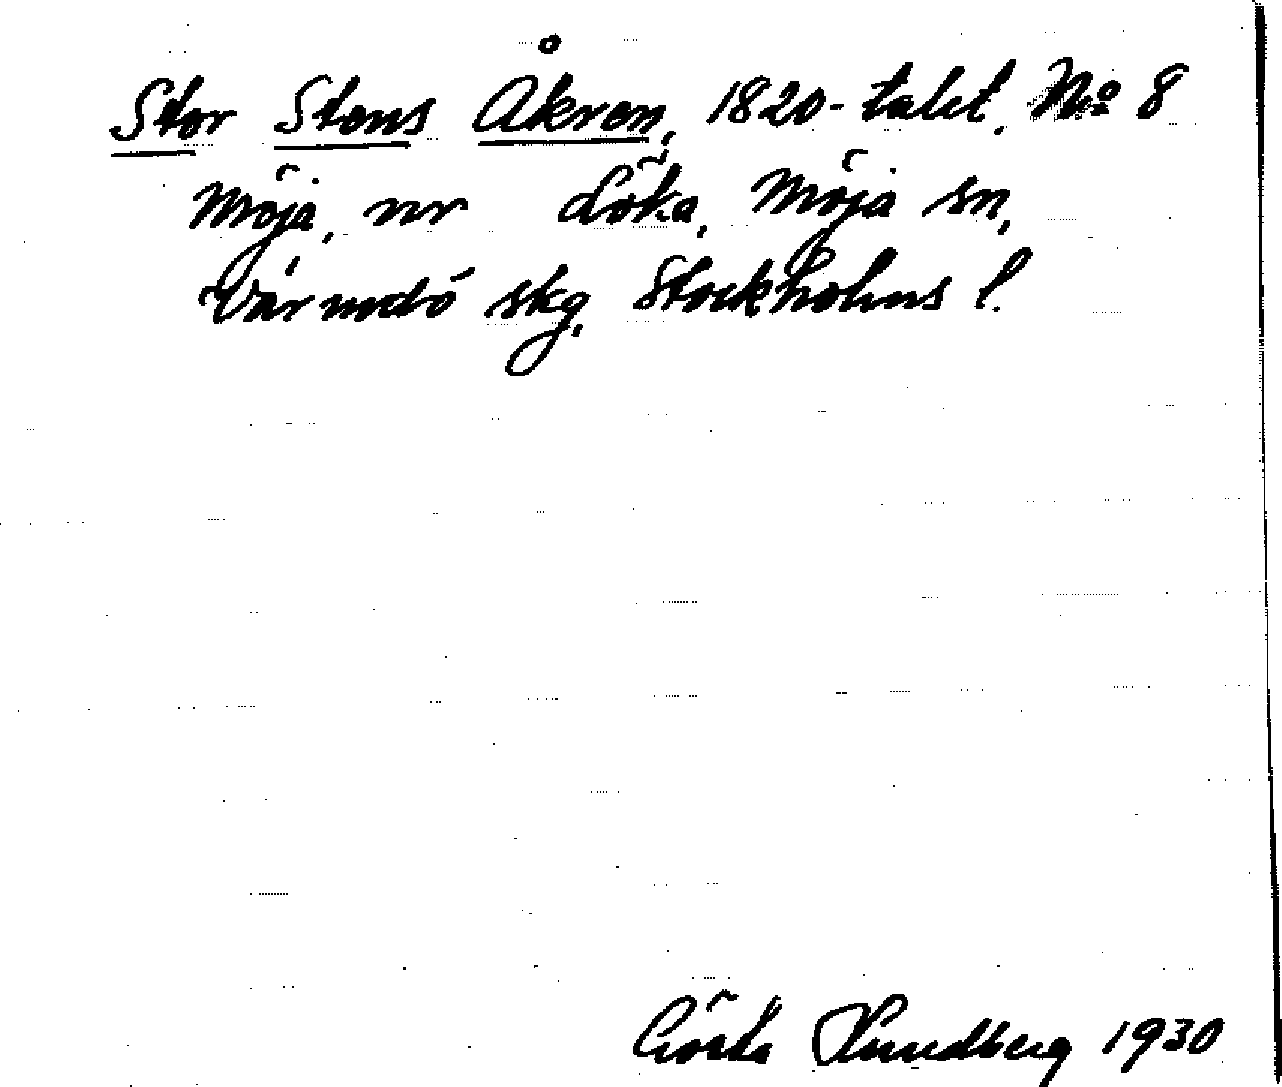 Stor Stens Åkren, 1820-talet. No 8
Möja, nr Löka, Möja sn,
Värmdö skg, Stockholms l.
Gösta Lundberg 1930